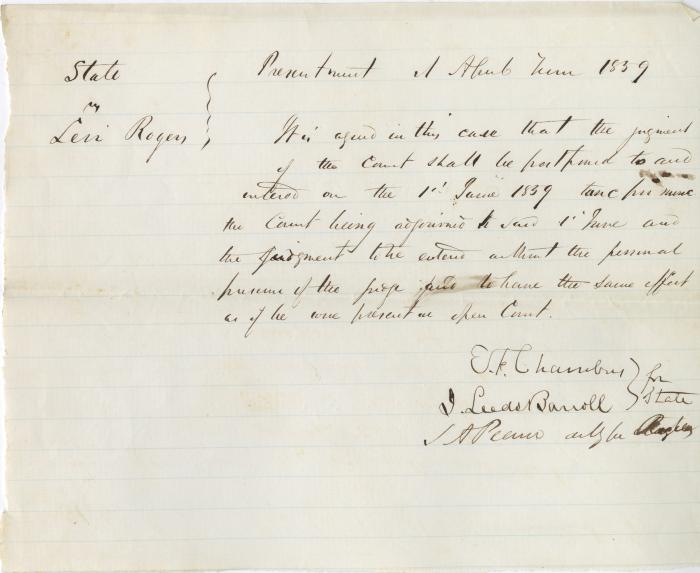 State
vs
Levi Rogers
Presentment at April Term 1859
It is agreed in this case that the judgment
of the Court shall be postponed to and
entered on the 1st June 1859 nunc pro tunc
the Court being adjourned to said 1st June and
the Judgment to be entered without the personal
presence of the judge and to have the same effect
as if he were present in open Court.
E.F. Chambers
J. Leeds Barroll
for State
J A Pearce atty for